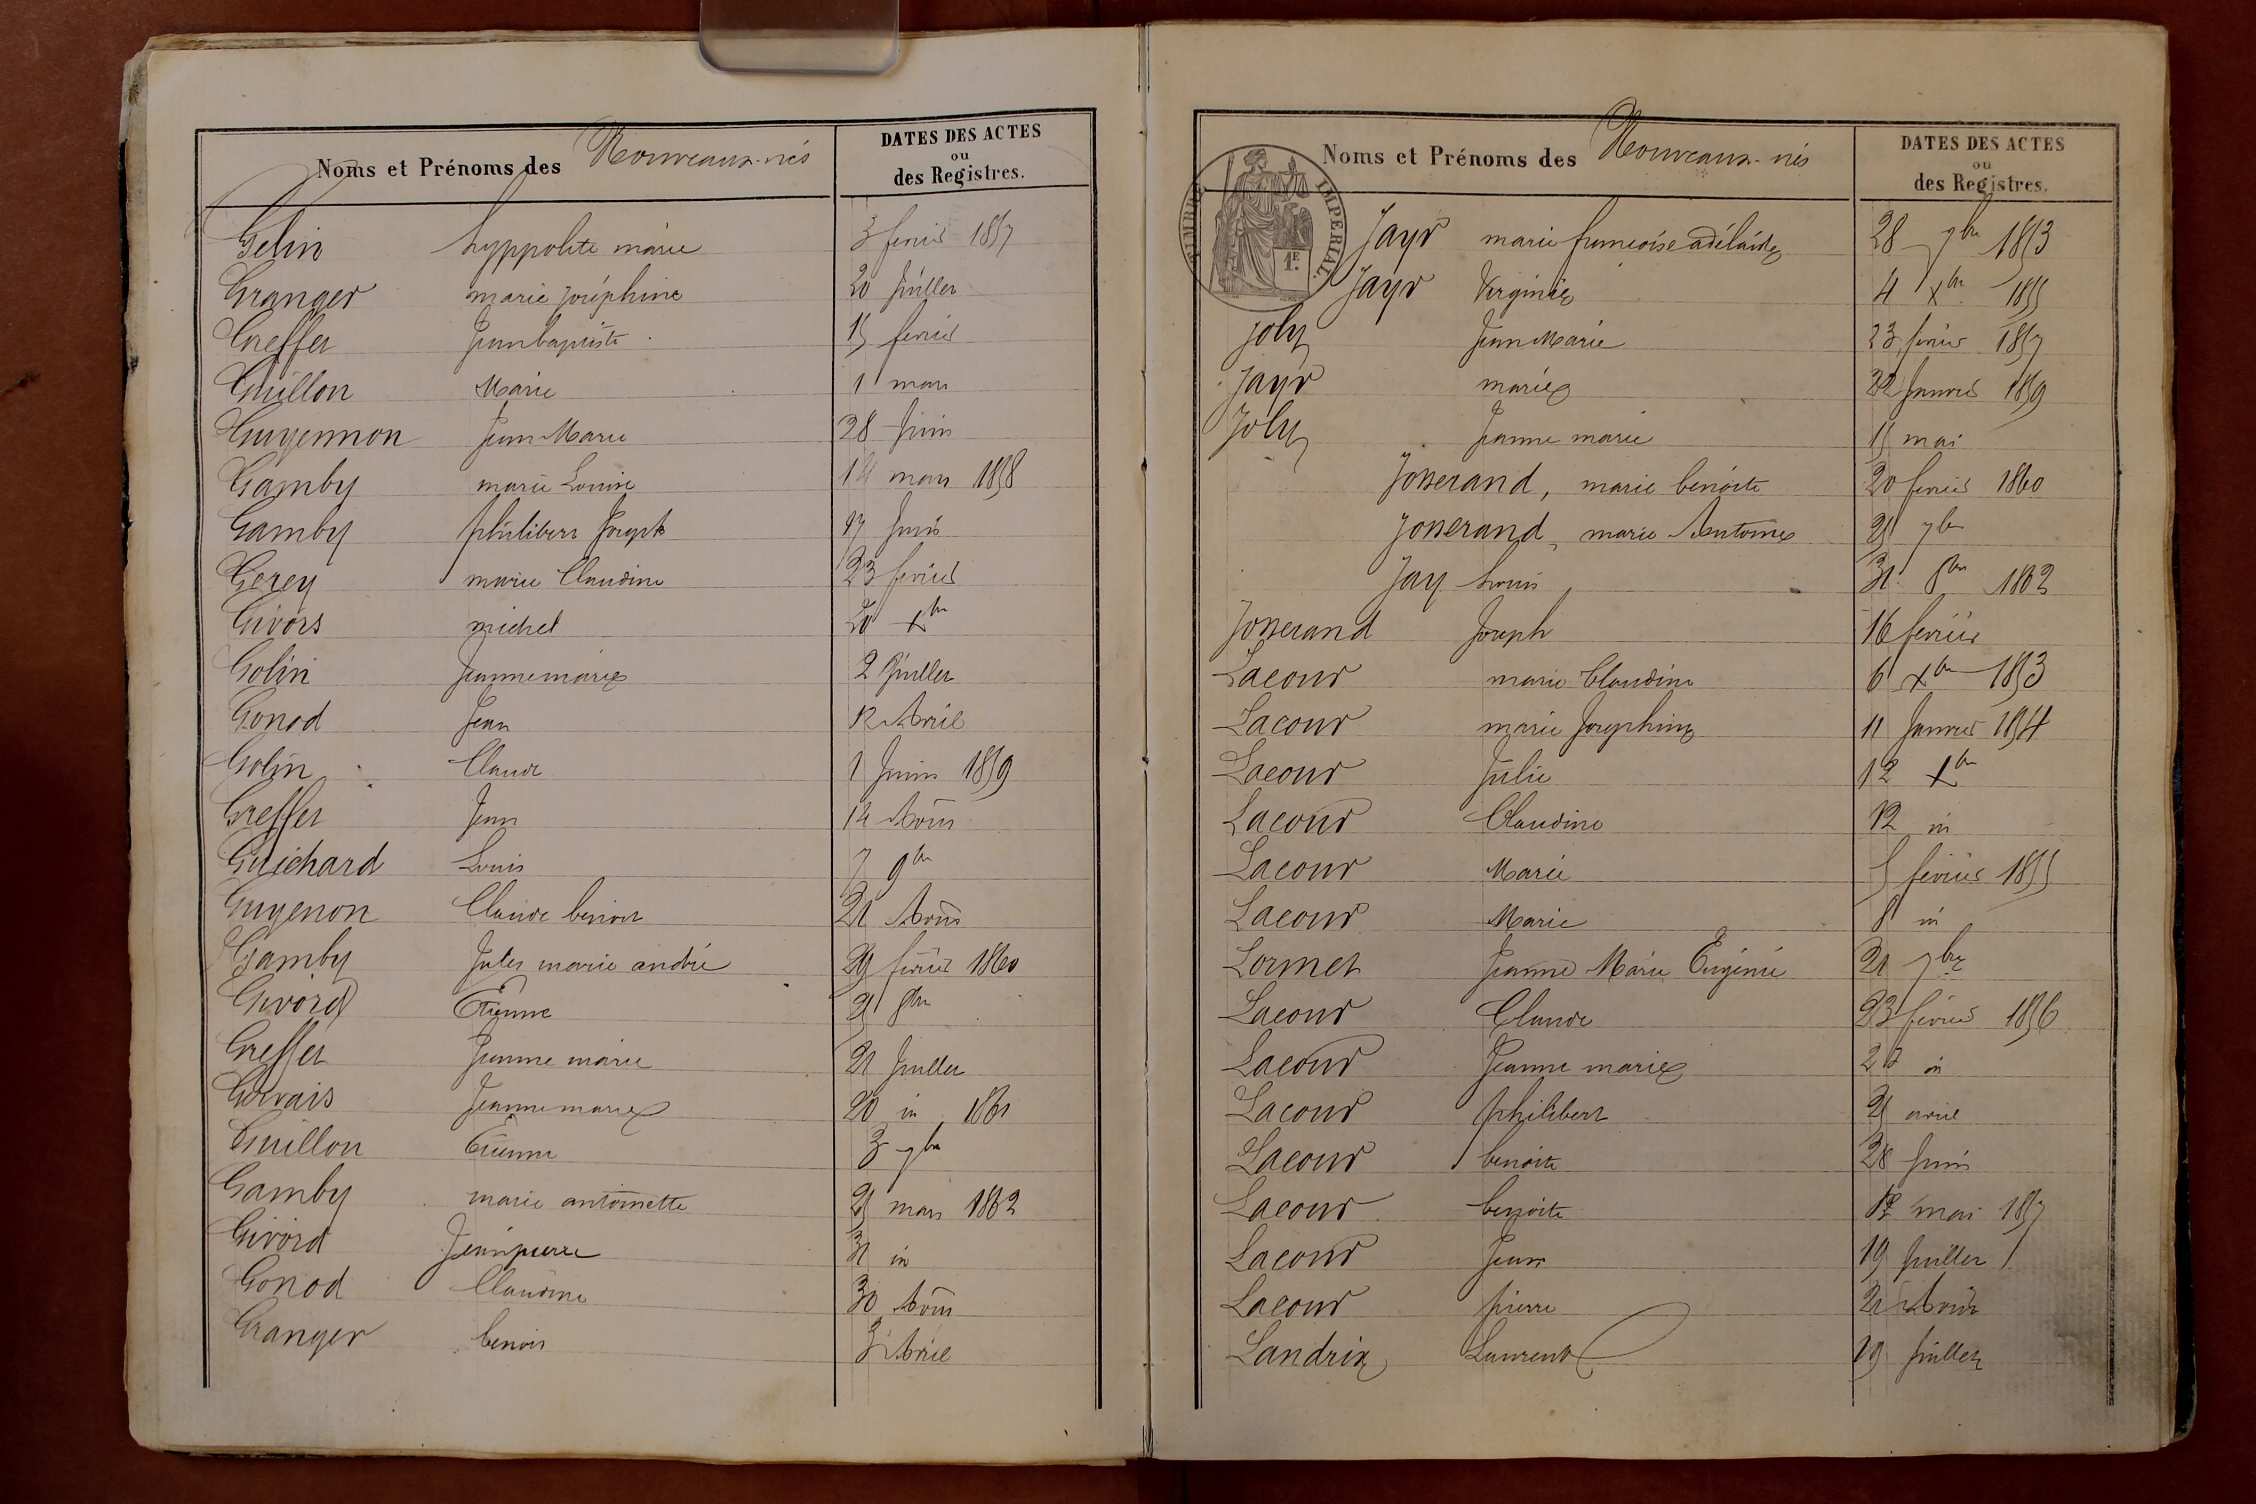 Noms et Prénoms des Nouveaux-nés
DATES DES ACTES
ou
des Registres.
Gelin hyppolite marie 3 fevrier 1857
Granger marie joséphine 20 juillet
Greffet Jeanbaptiste 15 fevrier
Guillon Marie 1 mars
Guyennon Jean Marie 28 Juin
Gamby marie Louise 14 mars 1858
Gamby philibert Joseph 17 Juin
Gerey marie Claudine 23 fevrier
Givors michel 20 Xbre
Golin Jeannemarie 2 Juillet
Gonod Jean 12 Avril
Golin Claude 1 Juin 1859
Greffet Jean 14 Aout
Guichard Louis 7 9bre
Guyenon Claude benoit 21 Aout
Gamby Jules marie andré 29 fevrier 1860
Givord Etienne 25 8bre
Greffet Jeanne marie 21 Juillet
Gervais Jeannemarie 20 id 1861
Guillon Etienne 3 7bre
Gamby marie antoinette 25 mars 1862
Givord Jeanpierre 31 id
Gonod Claudine 30 Aout
Granger benoit 3 Avril
Noms et Prénoms des Nouveaux-nés
DATES DES ACTES
ou
des Registres.
TIMBRE IMPERIAL.
1E.
Jayr marie francoise adélaïde 28 7bre 1853
Jayr Virginie 4 Xbre 1855
Joly Jean Marie 23 fevrier 1857
Jayr marie 22 Janvier 1859
Joly Jeanne marie 15 mai
Josserand, marie benoite 20 fevrier 1860
Josserand, marie Antoine 25 7bre
Jay Louis 31 8bre 1862
Josserand Joseph 16 fevrier
Lacour marie Claudine 6 Xbre 1853
Lacour marie Josephine 11 Janvier 1854
Lacour Julie 12 Xbre
Lacour Claudine 12 id
Lacour Marie 5 fevrier 1855
Lacour Marie 8 id
Lormet Jeanne Marie Eugénie 21 7bre
Lacour Claude 23 fevrier 1856
Lacour Jeanne marie id
Lacour philibert 25 avril
Lacour benoite 28 Juin
Lacour benoite 12 mai 1857
Lacour Jean 19 Juillet
Lacour pierre 21 Aout
Landrix Laurent 19 Juillet